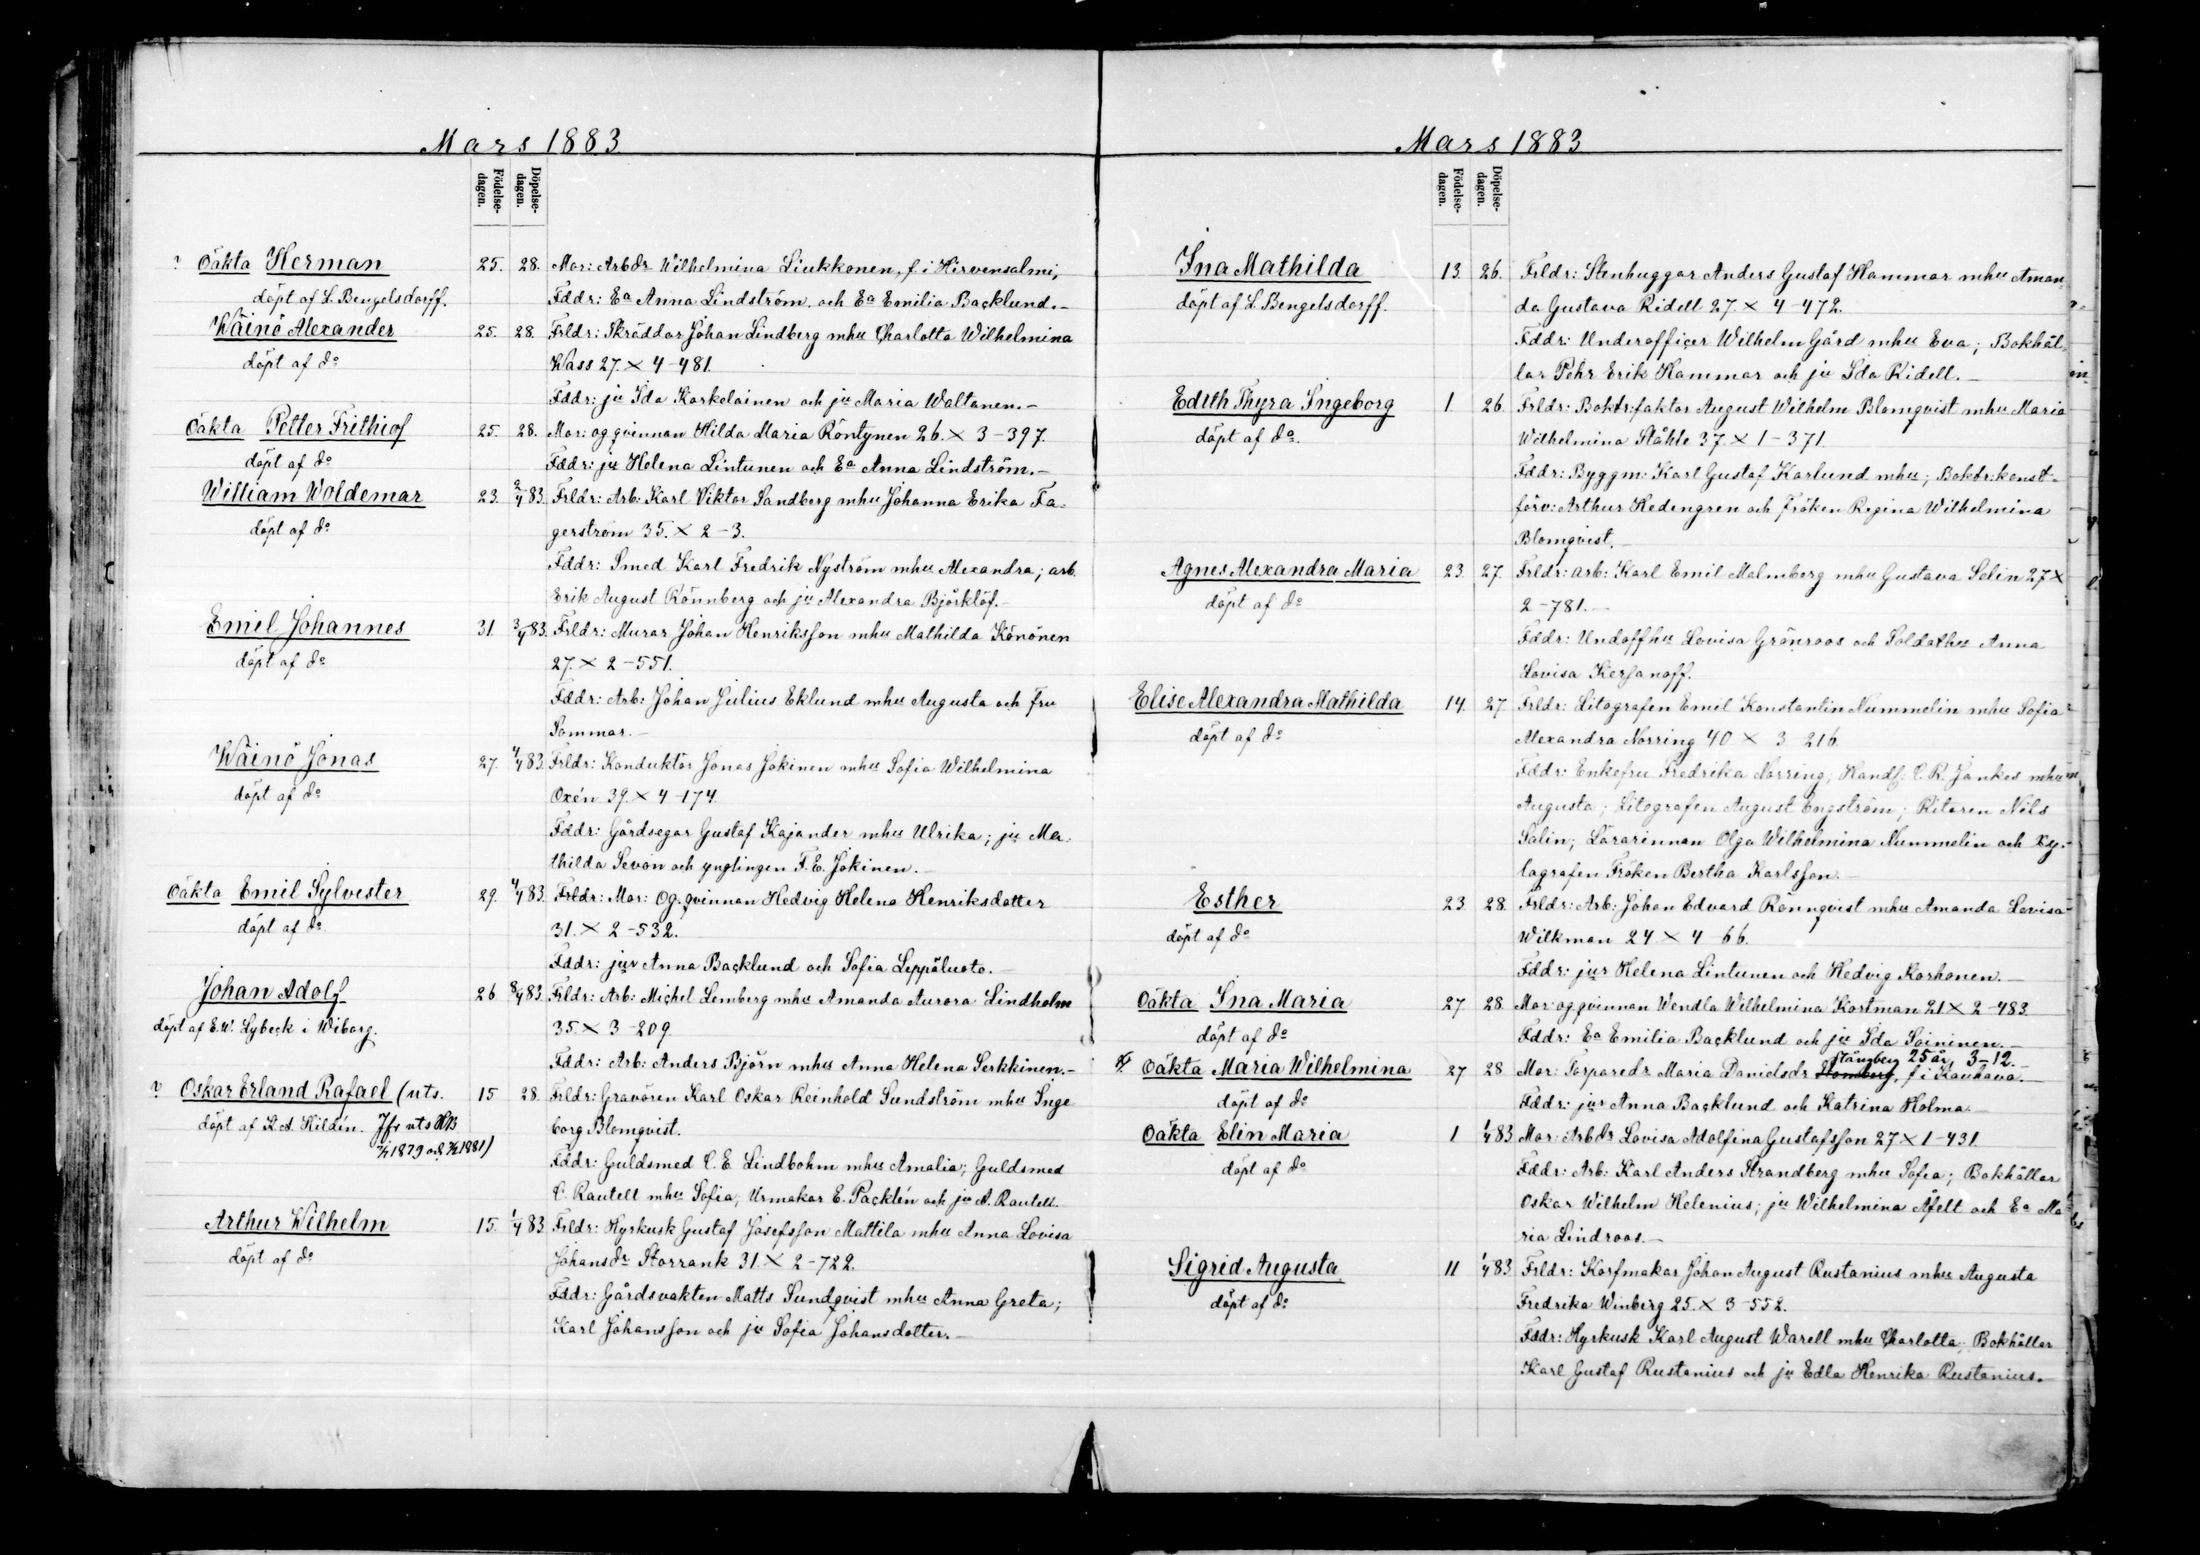 Mars 1883
Födelse-dagen.
Döpelse-dagen.
? Oäkta Herman 25. 28. Mor: Arbdr Wilhelmina Liukkonen, f i Hirvensalmi,
döpt af L. Bengelsdorff. Fddr: Ea Anna Lindström och Ea Emilia Backlund.-
Wäinö Alexander 25. 28. Frldr: Skräddar Johan Lindberg mhu Charlotta Wilhelmina
döpt af do Wass 27. × 4-481.
Fddr: ju Ida Karkelainen och ju Maria Waltanen.-
Oäkta Petter Frithiof 25. 28. Mor: og qvinnan Hilda Maria Röntynen 26. × 3-397.
döpt af do Fddr: ju Helena Lintunen och Ea Anna Lindström.-
William Woldemar 23. 2/4 83. Frldr: Arb: Karl Viktor Sandberg mhu Johanna Erika Fa-
döpt af do gerström 35. × 2-3.
Fddr: Smed Karl Fredrik Nyström mhu Alexandra; arb.
Erik August Rönnberg och ju Alexandra Björklöf.-
Emil Johannes 31. 3/4 83. Frldr: Murar Johan Henriksson mhu Mathilda Könönen
döpt af do 27. × 2-551.
Fddr: Arb: Johan Julius Eklund mhu Augusta och fru
Sommar.-
Wäinö Jonas 27. 4/4 83. Frldr: Konduktör Jonas Jokinen mhu Sofia Wilhelmina
döpt af do Oxén 39. × 4-174.
Fddr: Gårdsegar Gustaf Kajander mhu Ulrika; ju Ma-
thilda Sevón och ynglingen F. E. Jokinen.-
Oäkta Emil Sylvester 29. 4/4 83. Frldr: Mor: Og. qvinnan Hedvig Helena Henriksdotter
döpt af do 31. × 2-532.
Fddr: jur Anna Backlund och Sofia Leppäluoto.-
Johan Adolf 26 8/4 83. Frldr: Arb: Michel Lemberg mhu Amanda Aurora Lindholm
döpt af E. W. Lybeck i Wiborg. 35. × 3-209
Fddr: Arb: Anders Björn mhu Anna Helena Serkkinen.-
? Oskar Erland Rafael (uts. 15 28. Frldr: Gravören Karl Oskar Reinhold Sundström mhu Inge
döpt af K. A. Hildén. Jfr uts borg Blomqvist.
1879 och 1881) Fddr: Guldsmed C. E. Lindbohm mhu Amalia; Guldsmed
C. Rautell mhu Sofia; Urmakar E. Packlén och ju A. Rautell.
Arthur Wilhelm 15. 1/4 83. Frldr: Hyrkusk Gustaf Josefsson Mattila mhu Anna Lovisa
döpt af do Johansdr Storrank 31. × 2-722.
Fddr: Gårdsvakten Matts Sundqvist mhu Anna Greta;
Karl Johansson och ju Sofia Johansdotter.-
Mars 1883
Födelse-dagen.
Döpelse-dagen.
Ina Mathilda 13. 26. Frldr: Stenhuggar Anders Gustaf Hammar mhu Aman
döpt af L. Bengelsdorff. da Gustava Ridell 27. × 4-472.
Fddr: Underofficer Wilhelm Gård mhu Eva; Bokhål-
lar Pehr Erik Hammar och ju Ida Ridell.-
Edith Thyra Ingeborg 1. 26. Frldr: Boktr:faktor August Wilhelm Blomqvist mhu Maria
döpt af do. Wilhelmina Ståhle 37. × 1-371.
Fddr: Byggm: Karl Gustaf Karlund mhu; Boktr:konst-
förv: Arthur Hedengren och Fröken Regina Wilhelmina
Blomqvist.-
Agnes Alexandra Maria 23. 27. Frldr: arb: Karl Emil Malmberg mhu Gustava Selin 27 ×
döpt af do 2-781.-
Fddr: Undoffhu Lovisa Grönroos och Soldathu Anna
Lovisa Kersanoff.
Elise Alexandra Mathilda 14. 27. Frldr: Litografen Emil Konstantin Nummelin mhu Sofia
döpt af do Alexandra Norring 40 × 3-216.
Fddr: Enkefru Fredrika Norring; Handl: C. R. Jankes mhu
Augusta; Litografen August Engström; Ritaren Nils
Salin; Lärarinnan Olga Wilhelmina Nummelin och Xy-
lografen Fröken Bertha Karlsson.-
Esther 23. 28. Frldr: Arb: Johan Edvard Rönnqvist mhu Amanda Lovisa
döpt af do Wilkman 24 × 4-66.
Fddr: jur Helena Lintunen och Hedvig Korhonen.-
Oäkta Ina Maria 27 28. Mor: og qvinnan Wendla Wilhelmina Kortman 21 × 2-483.
döpt af do Fddr: Ea Emilia Backlund och ju Ida Soininen.-
Stångberg 25 år, 3-12.
Oäkta Maria Wilhelmina 27 28 Mor: Torparedr Maria Danielsdr Stomberg, f i Kauhava.-
döpt af do Fddr: jur Anna Backlund och Katrina Holma.-
Oäkta Elin Maria 1 1/4 83 Mor: Arbdr Lovisa Adolfina Gustafsson 27 × 1-431.
döpt af do Fddr: Arb: Karl Anders Strandberg mhu Sofia; Bokhållar
Oskar Wilhelm Helenius; ju Wilhelmina Åfelt och Ea Ma-
ria Lindroos.-
Sigrid Augusta 11 1/4 83. Frldr: Korfmakar Johan August Rustanius mhu Augusta
döpt af do Fredrika Winberg 25. × 3-552.
Fddr: Hyrkusk Karl August Warell mhu Charlotta; Bokhållar
Karl Gustaf Rustanius och ju Edla Henrika Rustanius.-